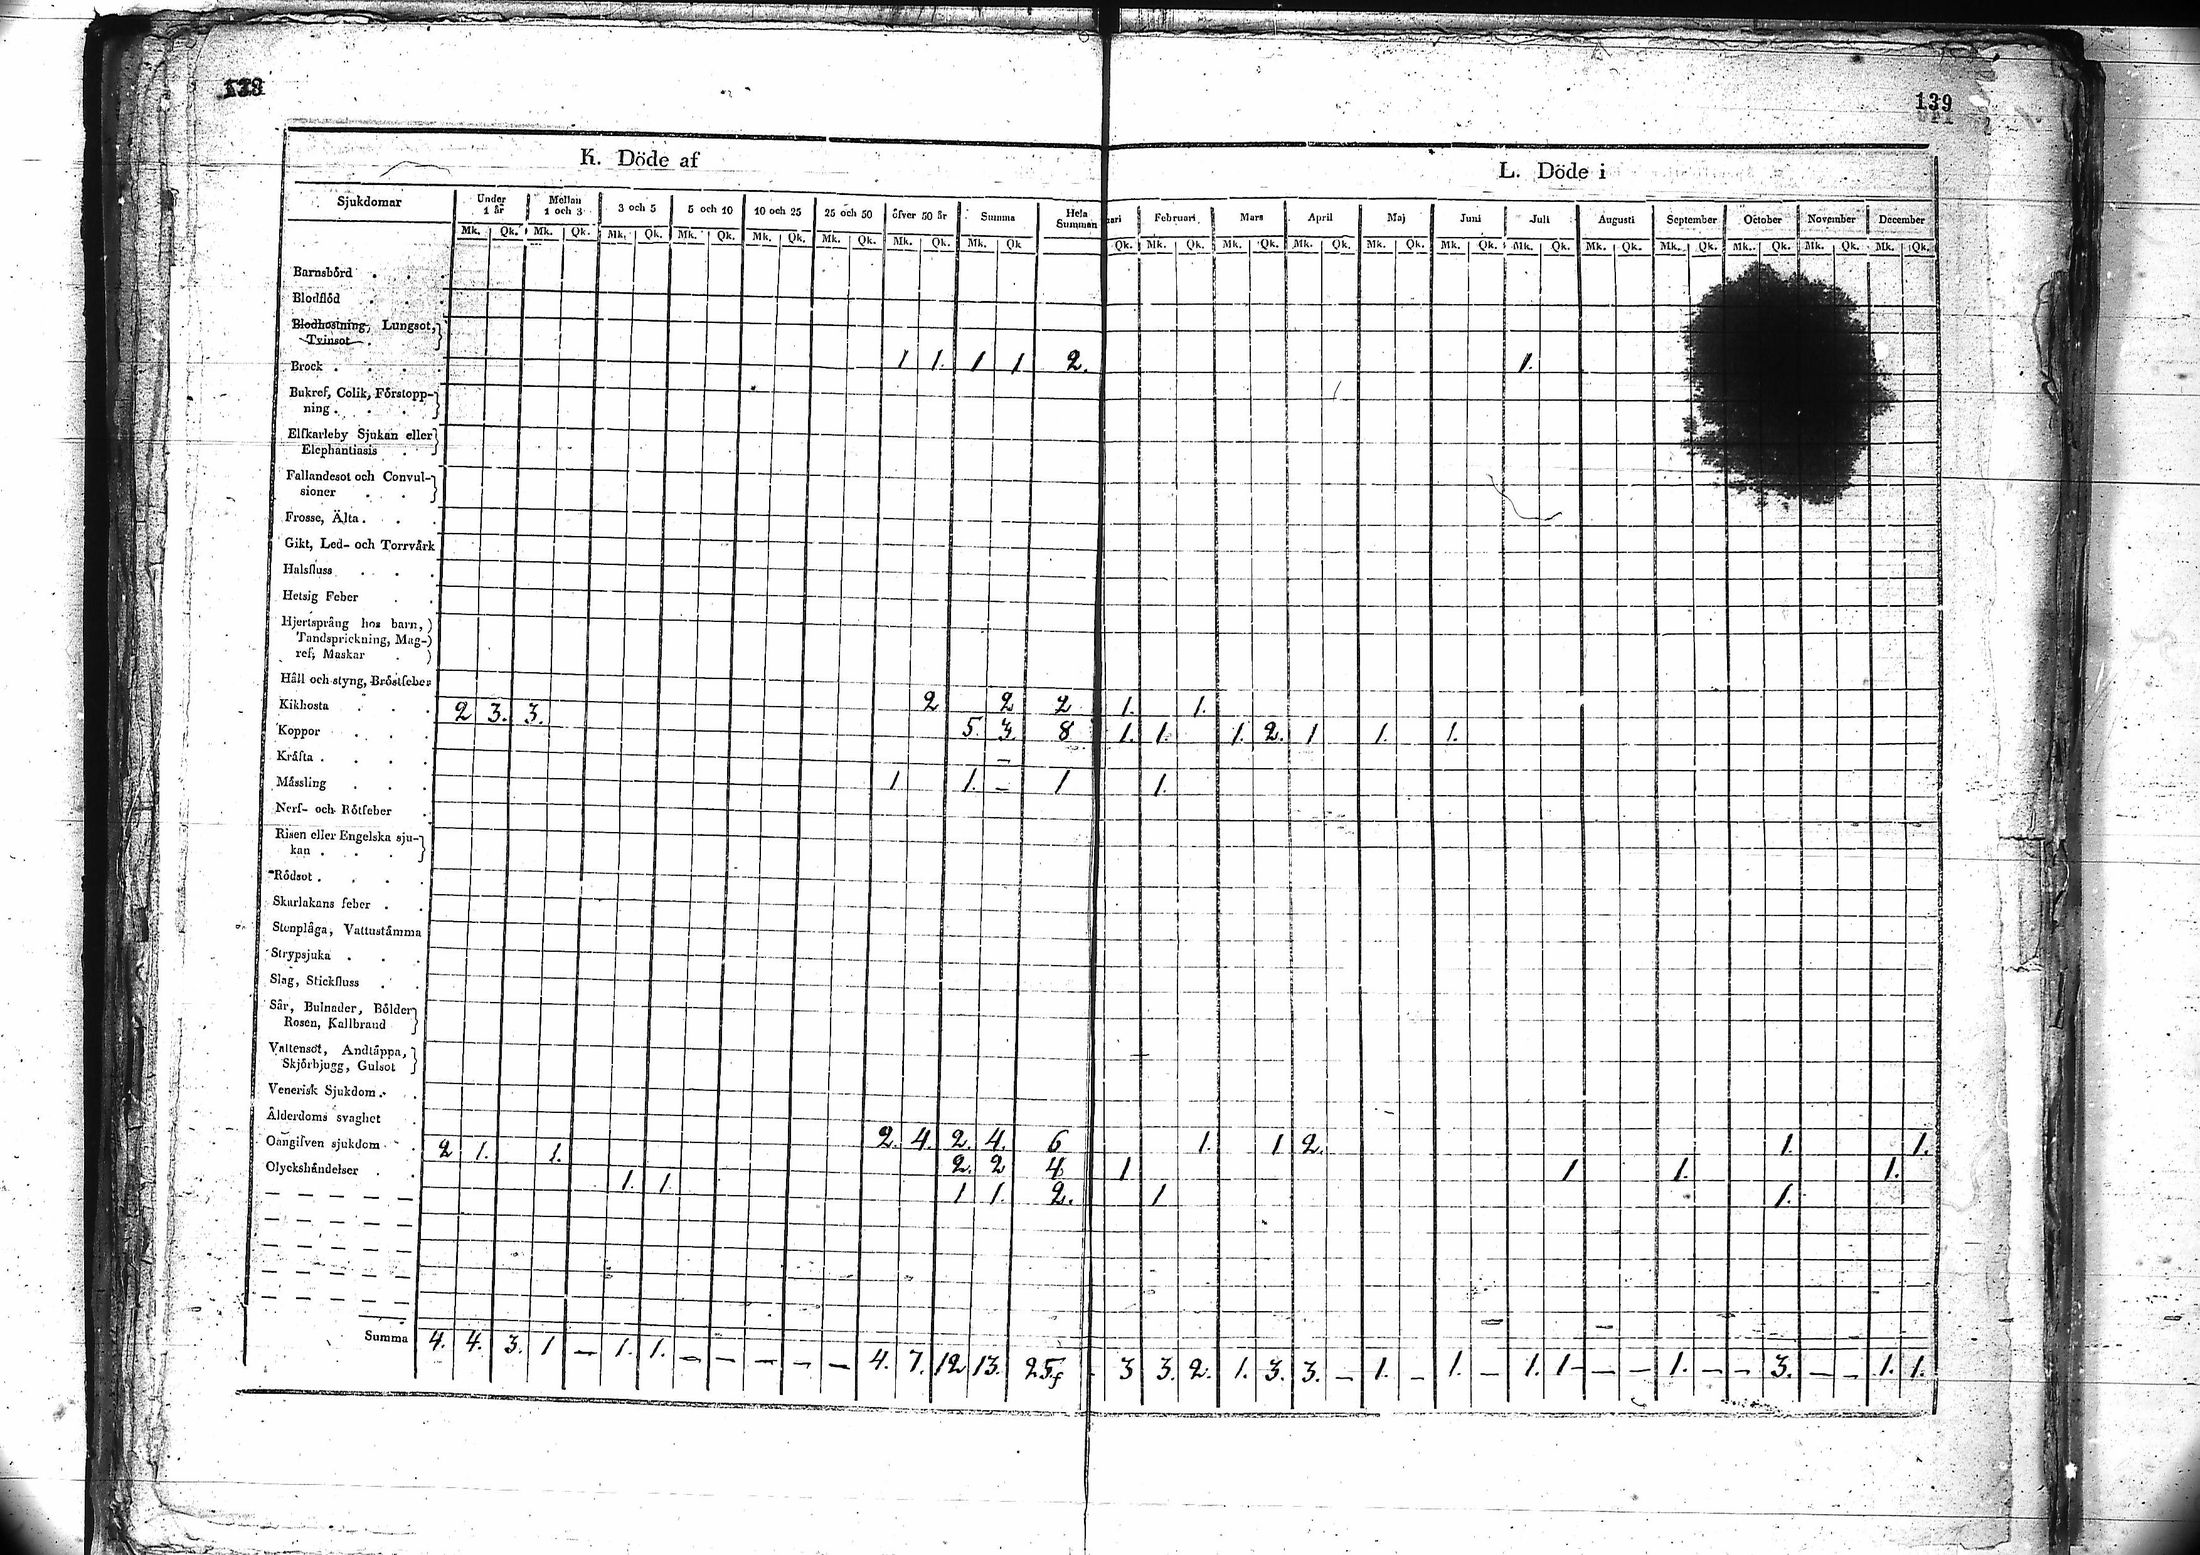 139
K. Döde af
L. Döde i
Sjukdomar Under 1 år Mellan 1 och 3 3 och 5 5 och 10 10 och 25 25 och 50 öfver 50 år Summa Hela Summan Februari Mars April Maj Juni Juli Augusti September October November December
Mk. Qk. Mk. Qk. Mk. Qk. Mk. Qk. Mk. Qk. Mk. Qk. Mk. Qk. Mk. Qk Qk. Mk. Qk. Mk. Qk. Mk. Qk. Mk. Qk. Mk. Qk. Mk. Qk. Mk. Qk. Mk. Qk. Mk. Qk. Mk. Qk. Mk. Qk.
Barnsbörd . . .
Blodflöd . . .
Blodhostning, Lungsot,
Tvinsot .
1 1. 1 1 2. 1.
Brock . . . .
Bukref, Colik, Förstopp-
ning . . .
Elfkarleby Sjukan eller
Elephantiasis .
Fallandesot och Convul-
sioner . .
Frosse, Älta . . .
Gikt, Led- och Torrvärk
Halsfluss . . .
Hetsig Feber . .
Hjertsprång hos barn,
Tandsprickning, Mag-
ref, Maskar .
Håll och styng, Bröstfeber
2 2 2 1. 1.
Kikhosta . . .
2 3. 3. 5. 3. 8 1. 1. 1. 2. 1 1. 1.
Koppor . . .
Kräfta . . . .
–
Mässling . . .
1 1. – 1 1.
Nerf- och Rötfeber .
Risen eller Engelska sju-
kan . . .
Rödsot . . . .
Skarlakans feber . .
Stenplåga, Vattustämma
Strypsjuka . . .
Slag, Stickfluss . .
Sår, Bulnader, Bölder
Rosen, Kallbrand
Vattensot, Andtäppa,
Skjörbjugg, Gulsot
Venerisk Sjukdom . .
Ålderdoms svaghet .
2. 4. 2. 4. 6 1. 1 2. 1. 1.
Oangifven sjukdom . .
2 1. 1. 2. 2 4 1 1 1. 1.
Olyckshändelser . .
1. 1. 1 1. 2. 1 1.
— — — — —
— — — — —
— — — — —
— — — — —
— — — — —
Summa 4. 4. 3. 1 – 1. 1. – – – – – 4. 7. 12 13. 25. 3 3. 2. 1. 3. 3. – 1. – 1. – 1. 1 – – 1. – – 3. – – 1. 1.